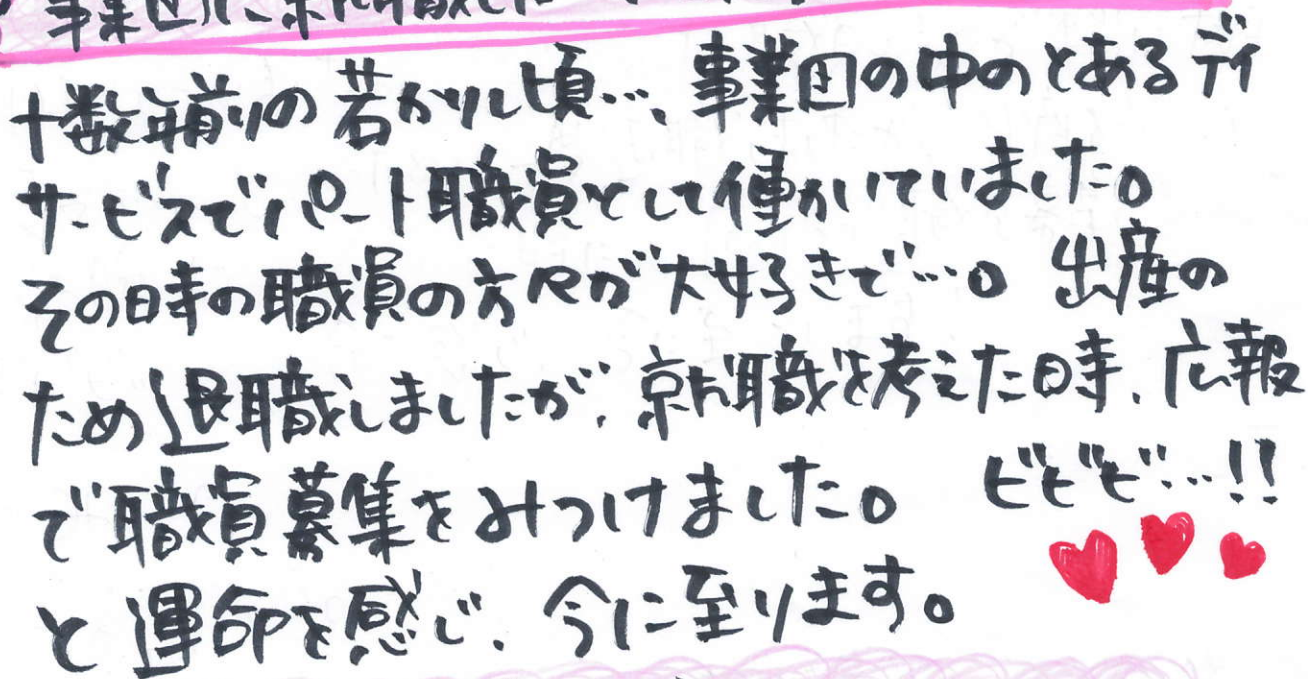 事業団に就職した
十数年前の若かりし頃…、事業団の中のとあるデイ
サービスでパート職員として働いていました。
その時の職員の方々が大好きで…。出産の
ため退職しましたが、就職を考えた時、広報
で職員募集をみつけました。ビビビ…!!
と運命を感じ、今に至ります。